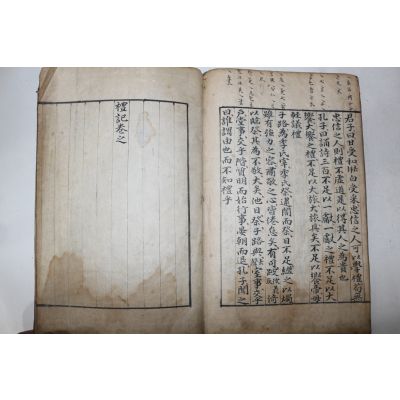 君子曰甘受和白受采忠信之人可以學禮苟無
忠信之人則禮不虛道是以得其人之為貴也
孔子曰誦詩三百不足以一獻一獻之禮不足以大
饗大饗之禮不足以大旅大旅具矣不足以饗帝毋
輕議禮
子路為季氏宰季氏祭逮闇而祭日不足繼之以燭
雖有強力之容肅敬之心皆倦怠矣有司跛倚
以臨祭其為不敬大矣他日祭子路與室事交乎
戶堂事交乎階質明而始行事晏朝而退孔子聞之
曰誰謂由也而不知禮乎
禮記卷之